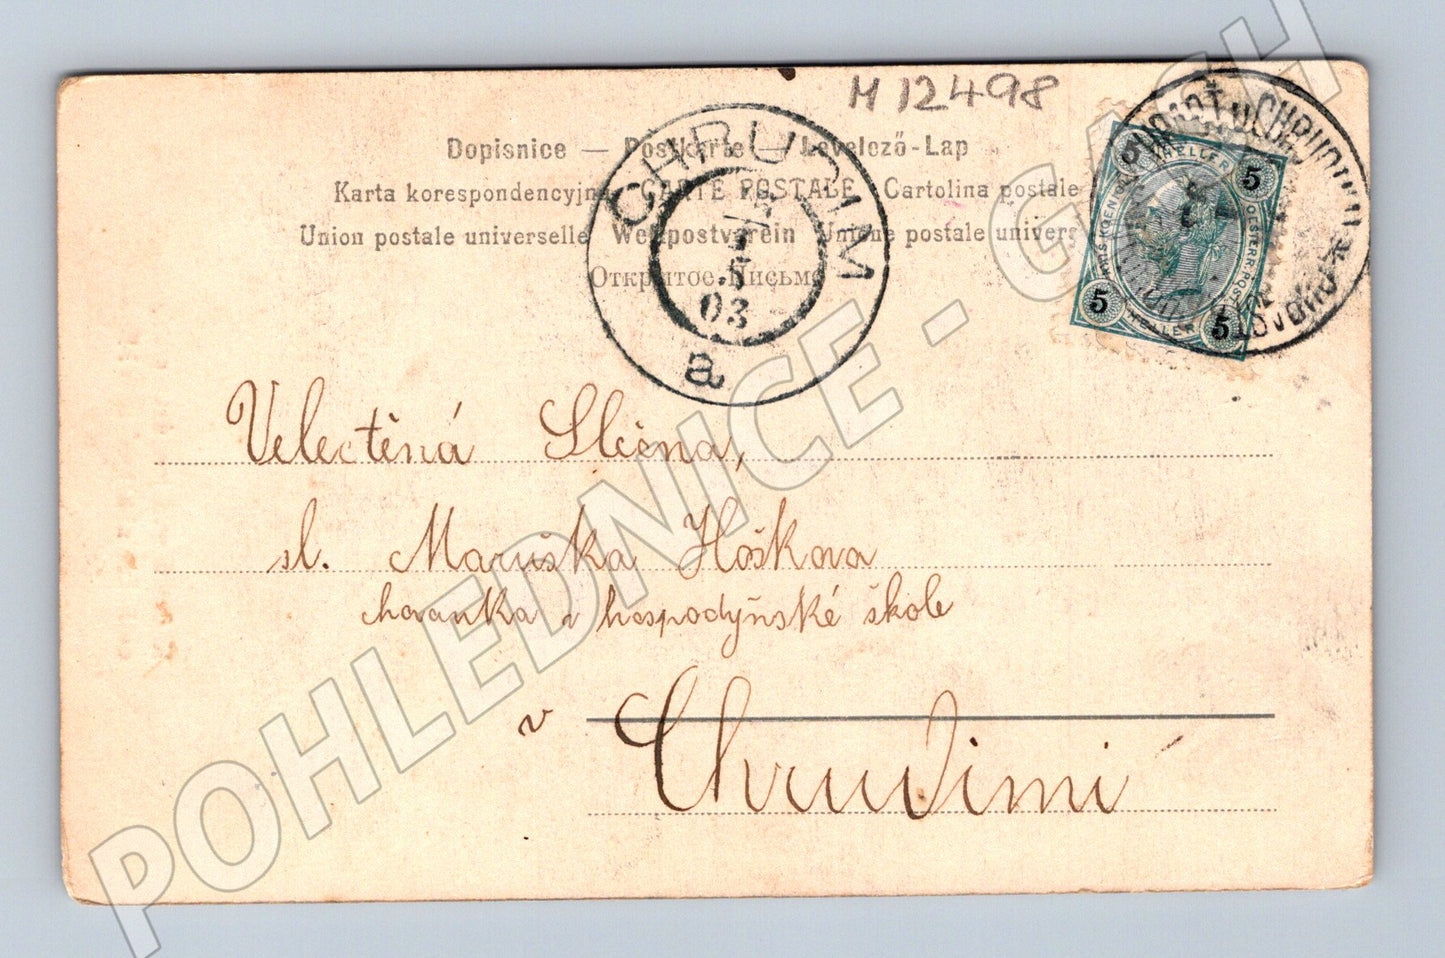 M 12498
Dopisnice — Postkarte — Levelező-Lap
Karta korespondencyjna CARTE POSTALE Cartolina postale
Union postale universelle Weltpostverein Unione postale univers
Открытое Письмо
CHRUDIM
03
a
5 HELLER 5
5 HELLER 5
Velectěná Slečna,
sl. Maruška Hošková
chovanka v hospodyňské škole
v Chrudimi
POHLEDNICE - GASH